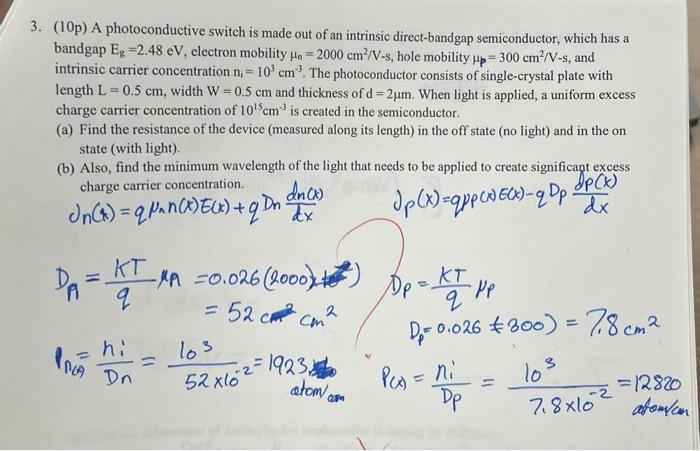 3. (10p) A photoconductive switch is made out of an intrinsic direct-bandgap semiconductor, which has a
bandgap Eg =2.48 eV, electron mobility μn = 2000 cm²/V-s, hole mobility μp = 300 cm²/V-s, and
intrinsic carrier concentration ni = 10³ cm⁻³. The photoconductor consists of single-crystal plate with
length L = 0.5 cm, width W = 0.5 cm and thickness of d = 2μm. When light is applied, a uniform excess
charge carrier concentration of 10¹⁵cm⁻³ is created in the semiconductor.
(a) Find the resistance of the device (measured along its length) in the off state (no light) and in the on
state (with light).
(b) Also, find the minimum wavelength of the light that needs to be applied to create significant excess
charge carrier concentration.
Jn(x) = q μn n(x) E(x) + q Dn dn(x)/dx
Jp(x) = q μ p(x) E(x) - q Dp dp(x)/dx
Dn = KT/q μn = 0.026 (2000)
Dp = KT/q μp
= 52 cm²
Dp = 0.026 (300) = 7.8 cm²
n(x) = ni/Dn = 10³/52×10⁻² = 1923 atom/cm
P(x) = ni/Dp = 10³/7.8×10⁻² = 12820 atom/cm